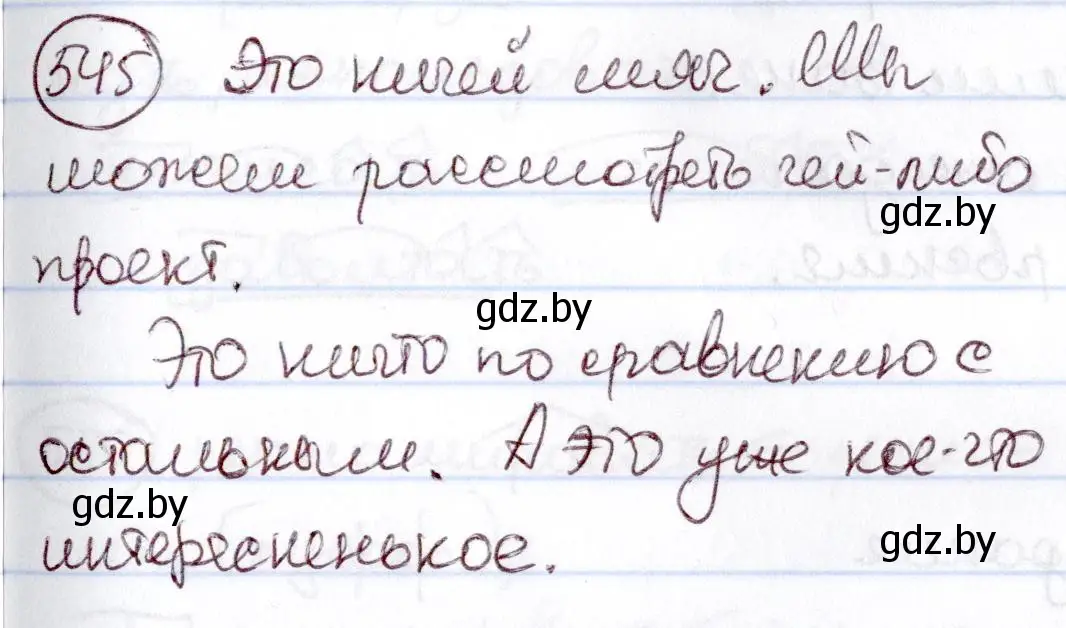 545 Это ничей мяч. Мы
можем рассмотреть чей-либо
gdz.by
проект.
gdz.by
Это ничто по сравнению с
остальными. А это уже кое-что
gdz.by
интересненькое.
gdz.by